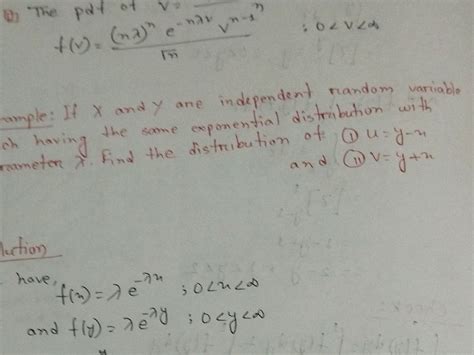 The pdf of V =
f(v) = (nλ)ⁿ e^{-nλv} v^{n-1} / √n ; 0 < v < ∞
ample: If X and Y are independent random variable
ch having the same exponential distribution with
rameter λ. Find the distribution of: (i) u = y - x
and (ii) v = y + x
lution
have,
f(x) = λ e^{-λx} ; 0 < x < ∞
and f(y) = λ e^{-λy} ; 0 < y < ∞